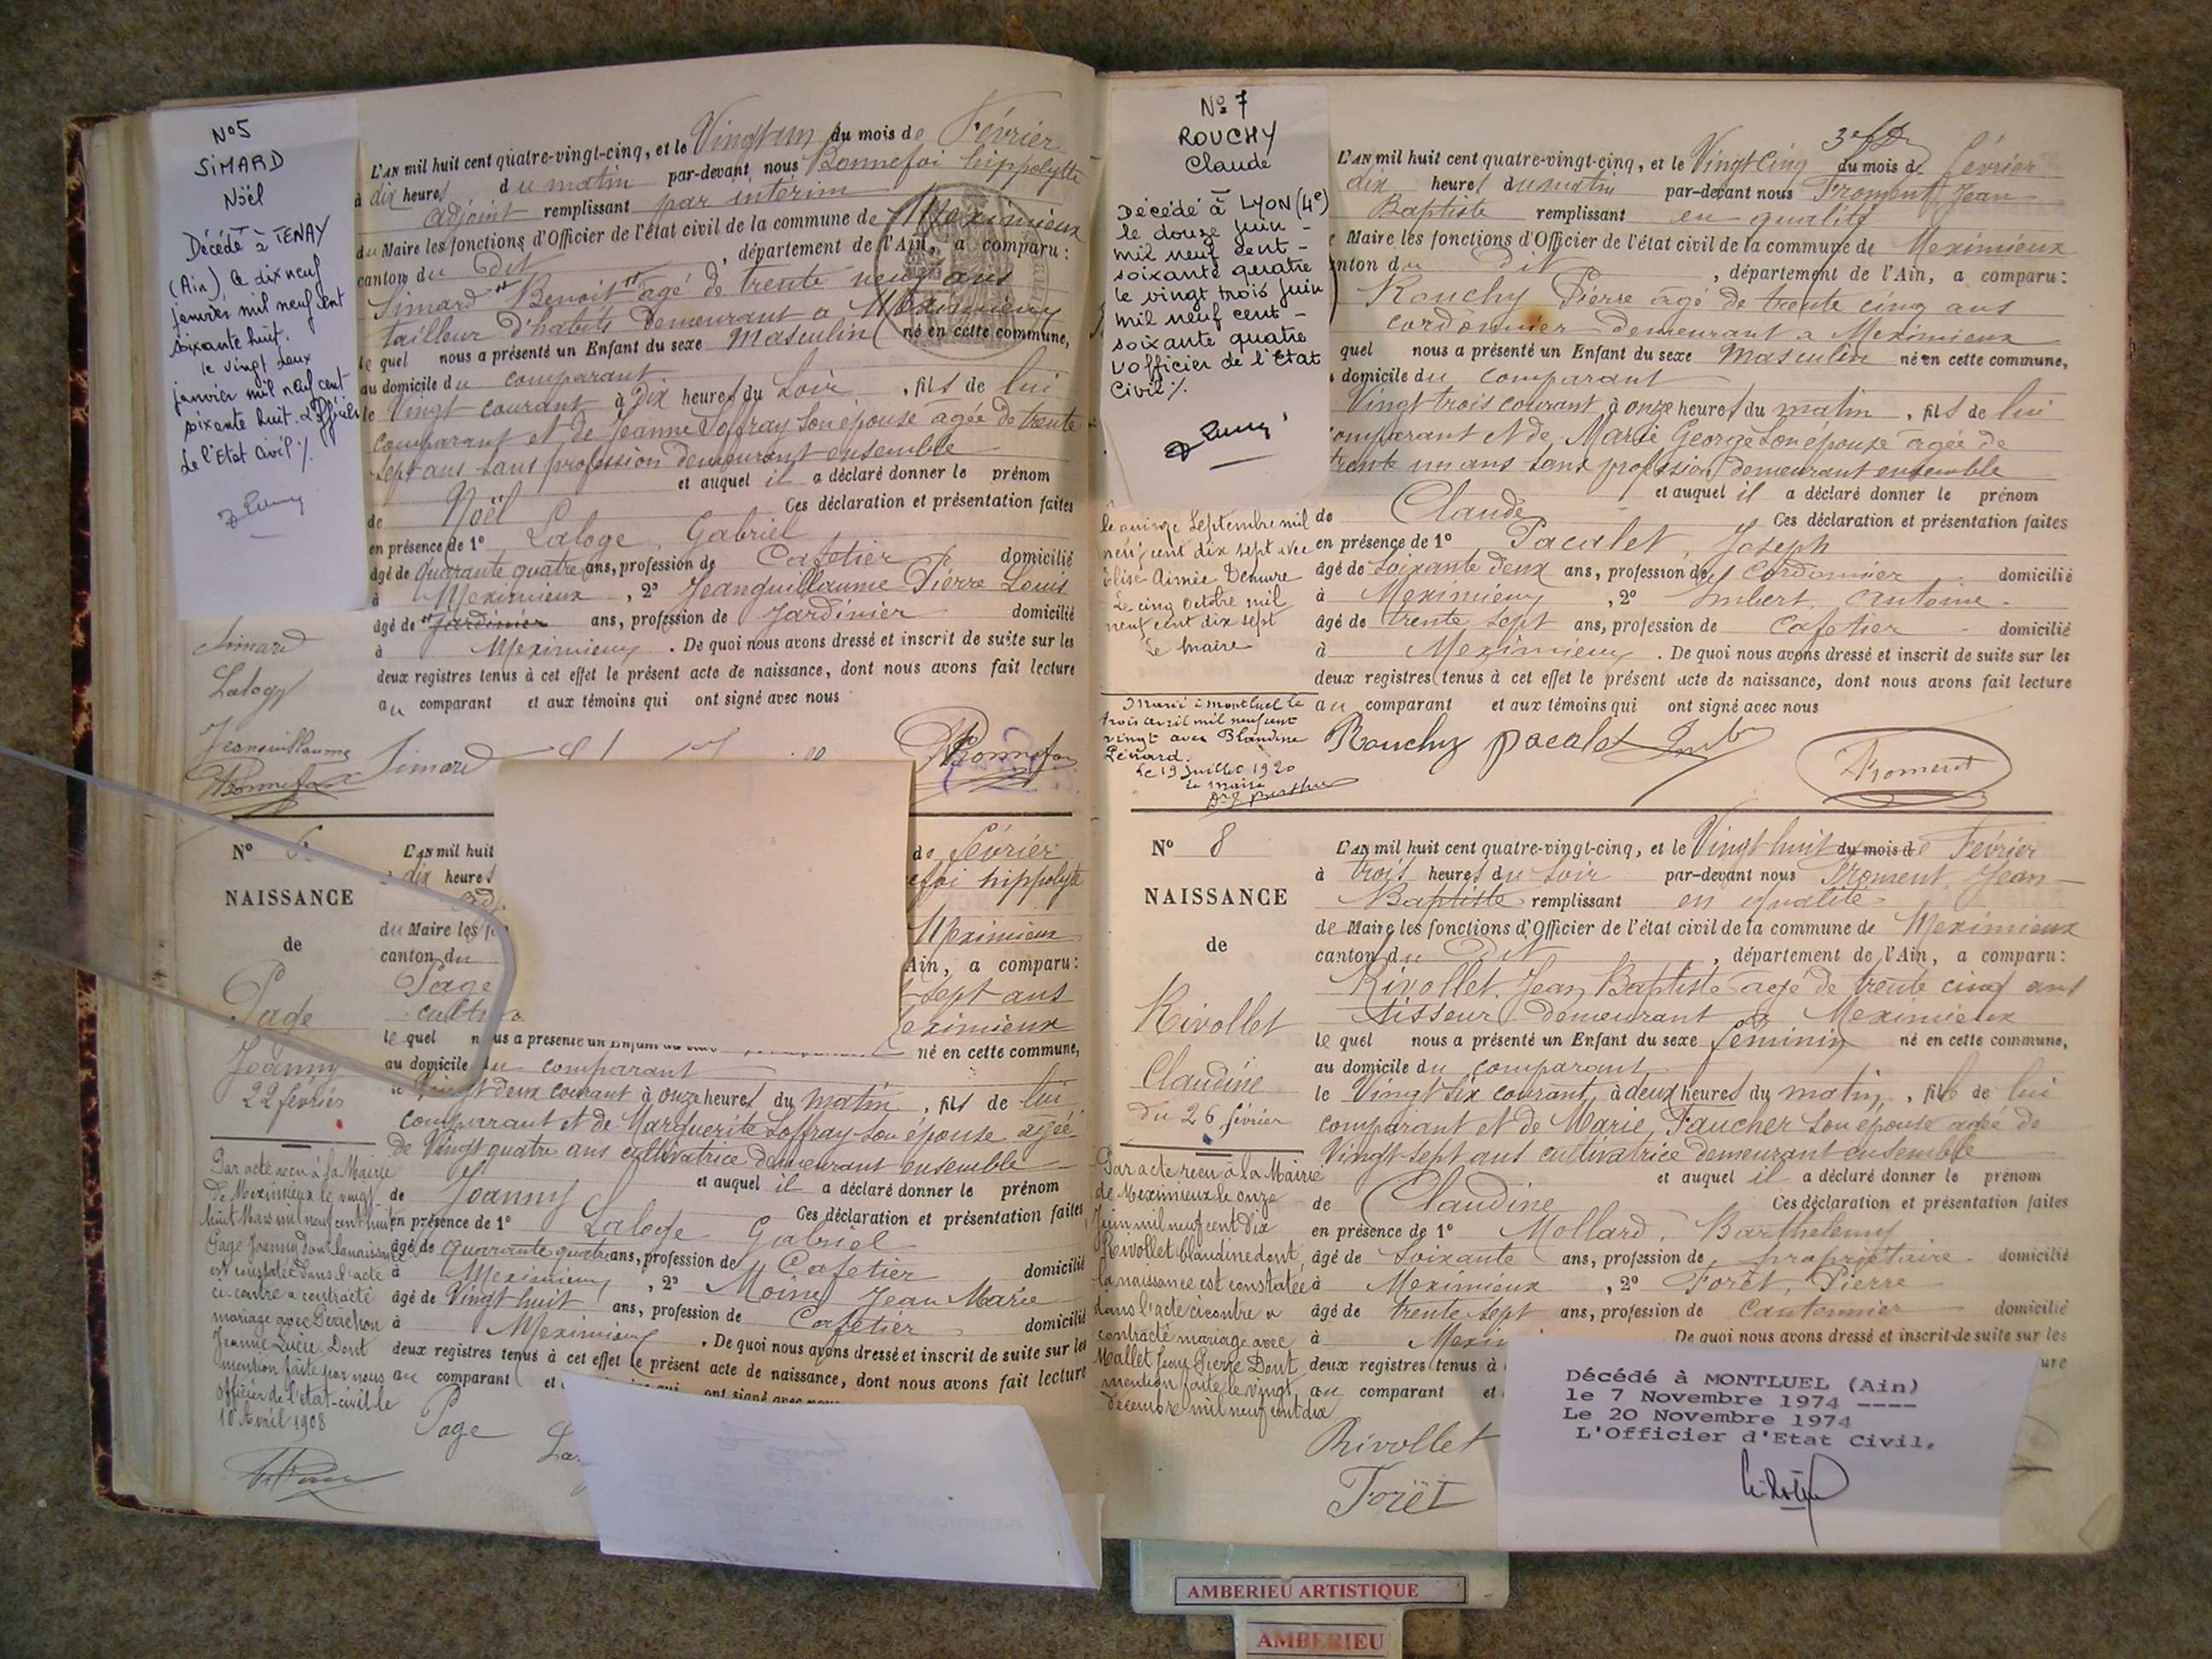 N°5
SIMARD
Noël
Décédé à TENAY
(Ain) le dix neuf
janvier mil neuf cent
soixante huit.
le vingt deux
janvier mil neuf cent
soixante huit. L'Officier
de l'Etat Civil %
L'AN mil huit cent quatre-vingt-cinq, et le Vingt un du mois de Février
à dix heures du matin par-devant nous Bonnefoi hippolytte
adjoint remplissant par interim
du Maire les fonctions d'Officier de l'état civil de la commune de Meximieux
canton du Dit , département de l'Ain, a comparu:
Simard Benoit agé de trente neuf ans
tailleur d'habits demeurant a Meximieux
le quel nous a présenté un Enfant du sexe Masculin né en cette commune,
au domicile du comparant
le Vingt courant à Dix heures du Soir , fils de lui
comparant et de Jeanne Soffray son épouse agée de trente
sept ans sans profession demeurant ensemble
et auquel il a déclaré donner le prénom
de Noël Ces déclaration et présentation faites
en présence de 1° Laloge, Gabriel
âgé de quarante quatre ans, profession de Cafetier domicilié
à Meximieux , 2° Jeanguillaume Pierre Louis
âgé de jardinier ans, profession de jardinier domicilié
à Meximieux . De quoi nous avons dressé et inscrit de suite sur les
deux registres tenus à cet effet le présent acte de naissance, dont nous avons fait lecture
au comparant et aux témoins qui ont signé avec nous
Simard
Laloge
Jeanguillaume
Bonnefoi
Simard
Bonnefoi
N° 6
NAISSANCE
de
Page
Joanny
22 février
Par acte reçu à la Mairie
de Meximieux le vingt
huit Mars mil neuf cent huit
Page Joanny dont la naissance
est constatée dans l'acte
ci-contre a contracté
mariage avec
Jeanne Lucie. Dont
mention faite par nous
officier de l'état-civil le
10 Avril 1908
L'AN mil huit
à dix heures
du Maire les fo
canton du
Page
cultiva
de février
efoi hippolyte
Meximieux
Ain, a comparu:
t sept ans
eximieux
le quel nous a présenté un Enfant du sexe né en cette commune,
au domicile du comparant
le Vingt deux courant à onze heures du matin , fils de lui
comparant et de Marguerite Soffray son épouse agée
de Vingt quatre ans cultivatrice demeurant ensemble
et auquel il a déclaré donner le prénom
de Joanny Ces déclaration et présentation faites
en présence de 1° Laloge Gabriel
âgé de quarante quatre ans, profession de Cafetier domicilié
à Meximieux , 2° Moine Jean Marie
âgé de Vingt huit ans, profession de Cafetier domicilié
à Meximieux . De quoi nous avons dressé et inscrit de suite sur les
deux registres tenus à cet effet le présent acte de naissance, dont nous avons fait lecture
au comparant et qui ont signé avec nous
Page La
N° 7
ROUCHY
Claude
Décédé à LYON (4e)
le douze juin -
mil neuf cent -
soixante quatre
le vingt trois juin
mil neuf cent -
soixante quatre
L'officier de l'Etat
Civil %
le quinze Septembre mil
neuf cent dix sept avec
Elise Aimée Demure
Le cinq Octobre mil
neuf cent dix sept
Le maire
Marié à Montluel le
trois avril mil neuf cent
vingt avec Blandine
Pénard.
Le 19 Juillet 1920
Le maire
L'AN mil huit cent quatre-vingt-cinq, et le Vingt Cinq du mois de février
dix heures du matin par-devant nous Froment Jean
Baptiste remplissant en qualité
e Maire les fonctions d'Officier de l'état civil de la commune de Meximieux
anton du Dit , département de l'Ain, a comparu:
Rouchy Pierre agé de trente cinq ans
cordonnier demeurant a Meximieux
quel nous a présenté un Enfant du sexe Masculin né en cette commune,
domicile du comparant
Vingt trois courant à onze heures du matin , fils de lui
comparant et de Marie George son épouse agée de
trente un ans sans profession demeurant ensemble
et auquel il a déclaré donner le prénom
de Claude Ces déclaration et présentation faites
en présence de 1° Pacalet, Joseph
âgé de soixante deux ans, profession de Cordonnier domicilié
à Meximieux , 2° Imbert, Antoine
âgé de trente sept ans, profession de Cafetier domicilié
à Meximieux . De quoi nous avons dressé et inscrit de suite sur les
deux registres tenus à cet effet le présent acte de naissance, dont nous avons fait lecture
au comparant et aux témoins qui ont signé avec nous
Rouchy pacalet
Froment
N° 8
NAISSANCE
de
Rivollet
Claudine
du 26 février
Par acte reçu à la Mairie
de Meximieux le onze
Juin mil neuf cent dix
Rivollet Claudine dont
la naissance est constatée
dans l'acte ci contre a
contracté mariage avec
Mallet Jean Pierre Dont
mention faite le vingt
décembre mil neuf cent dix
L'AN mil huit cent quatre-vingt-cinq, et le Vingt huit du mois de Février
à trois heures du soir par-devant nous Froment, Jean
Baptiste remplissant en qualité
de Maire les fonctions d'Officier de l'état civil de la commune de Meximieux
canton du Dit , département de l'Ain, a comparu:
Rivollet, Jean Baptiste agé de trente cinq ans
tisseur demeurant a Meximieux
le quel nous a présenté un Enfant du sexe féminin né en cette commune,
au domicile du comparant
le Vingt six courant, à deux heures du matin , fille de lui
comparant et de Marie Faucher son épouse agée de
Vingt sept ans cultivatrice demeurant ensemble
et auquel il a déclaré donner le prénom
de Claudine Ces déclaration et présentation faites
en présence de 1° Mollard, Barthelemy
âgé de soixante ans, profession de propriétaire domicilié
à Meximieux , 2° Forêt, Pierre
âgé de trente sept ans, profession de Cantonnier domicilié
à Mexim De quoi nous avons dressé et inscrit de suite sur les
deux registres tenus à ure
au comparant et
Rivollet
Forêt
Décédé à MONTLUEL (Ain)
le 7 Novembre 1974 ----
Le 20 Novembre 1974
L'Officier d'Etat Civil.
AMBERIEU ARTISTIQUE
AMBERIEU